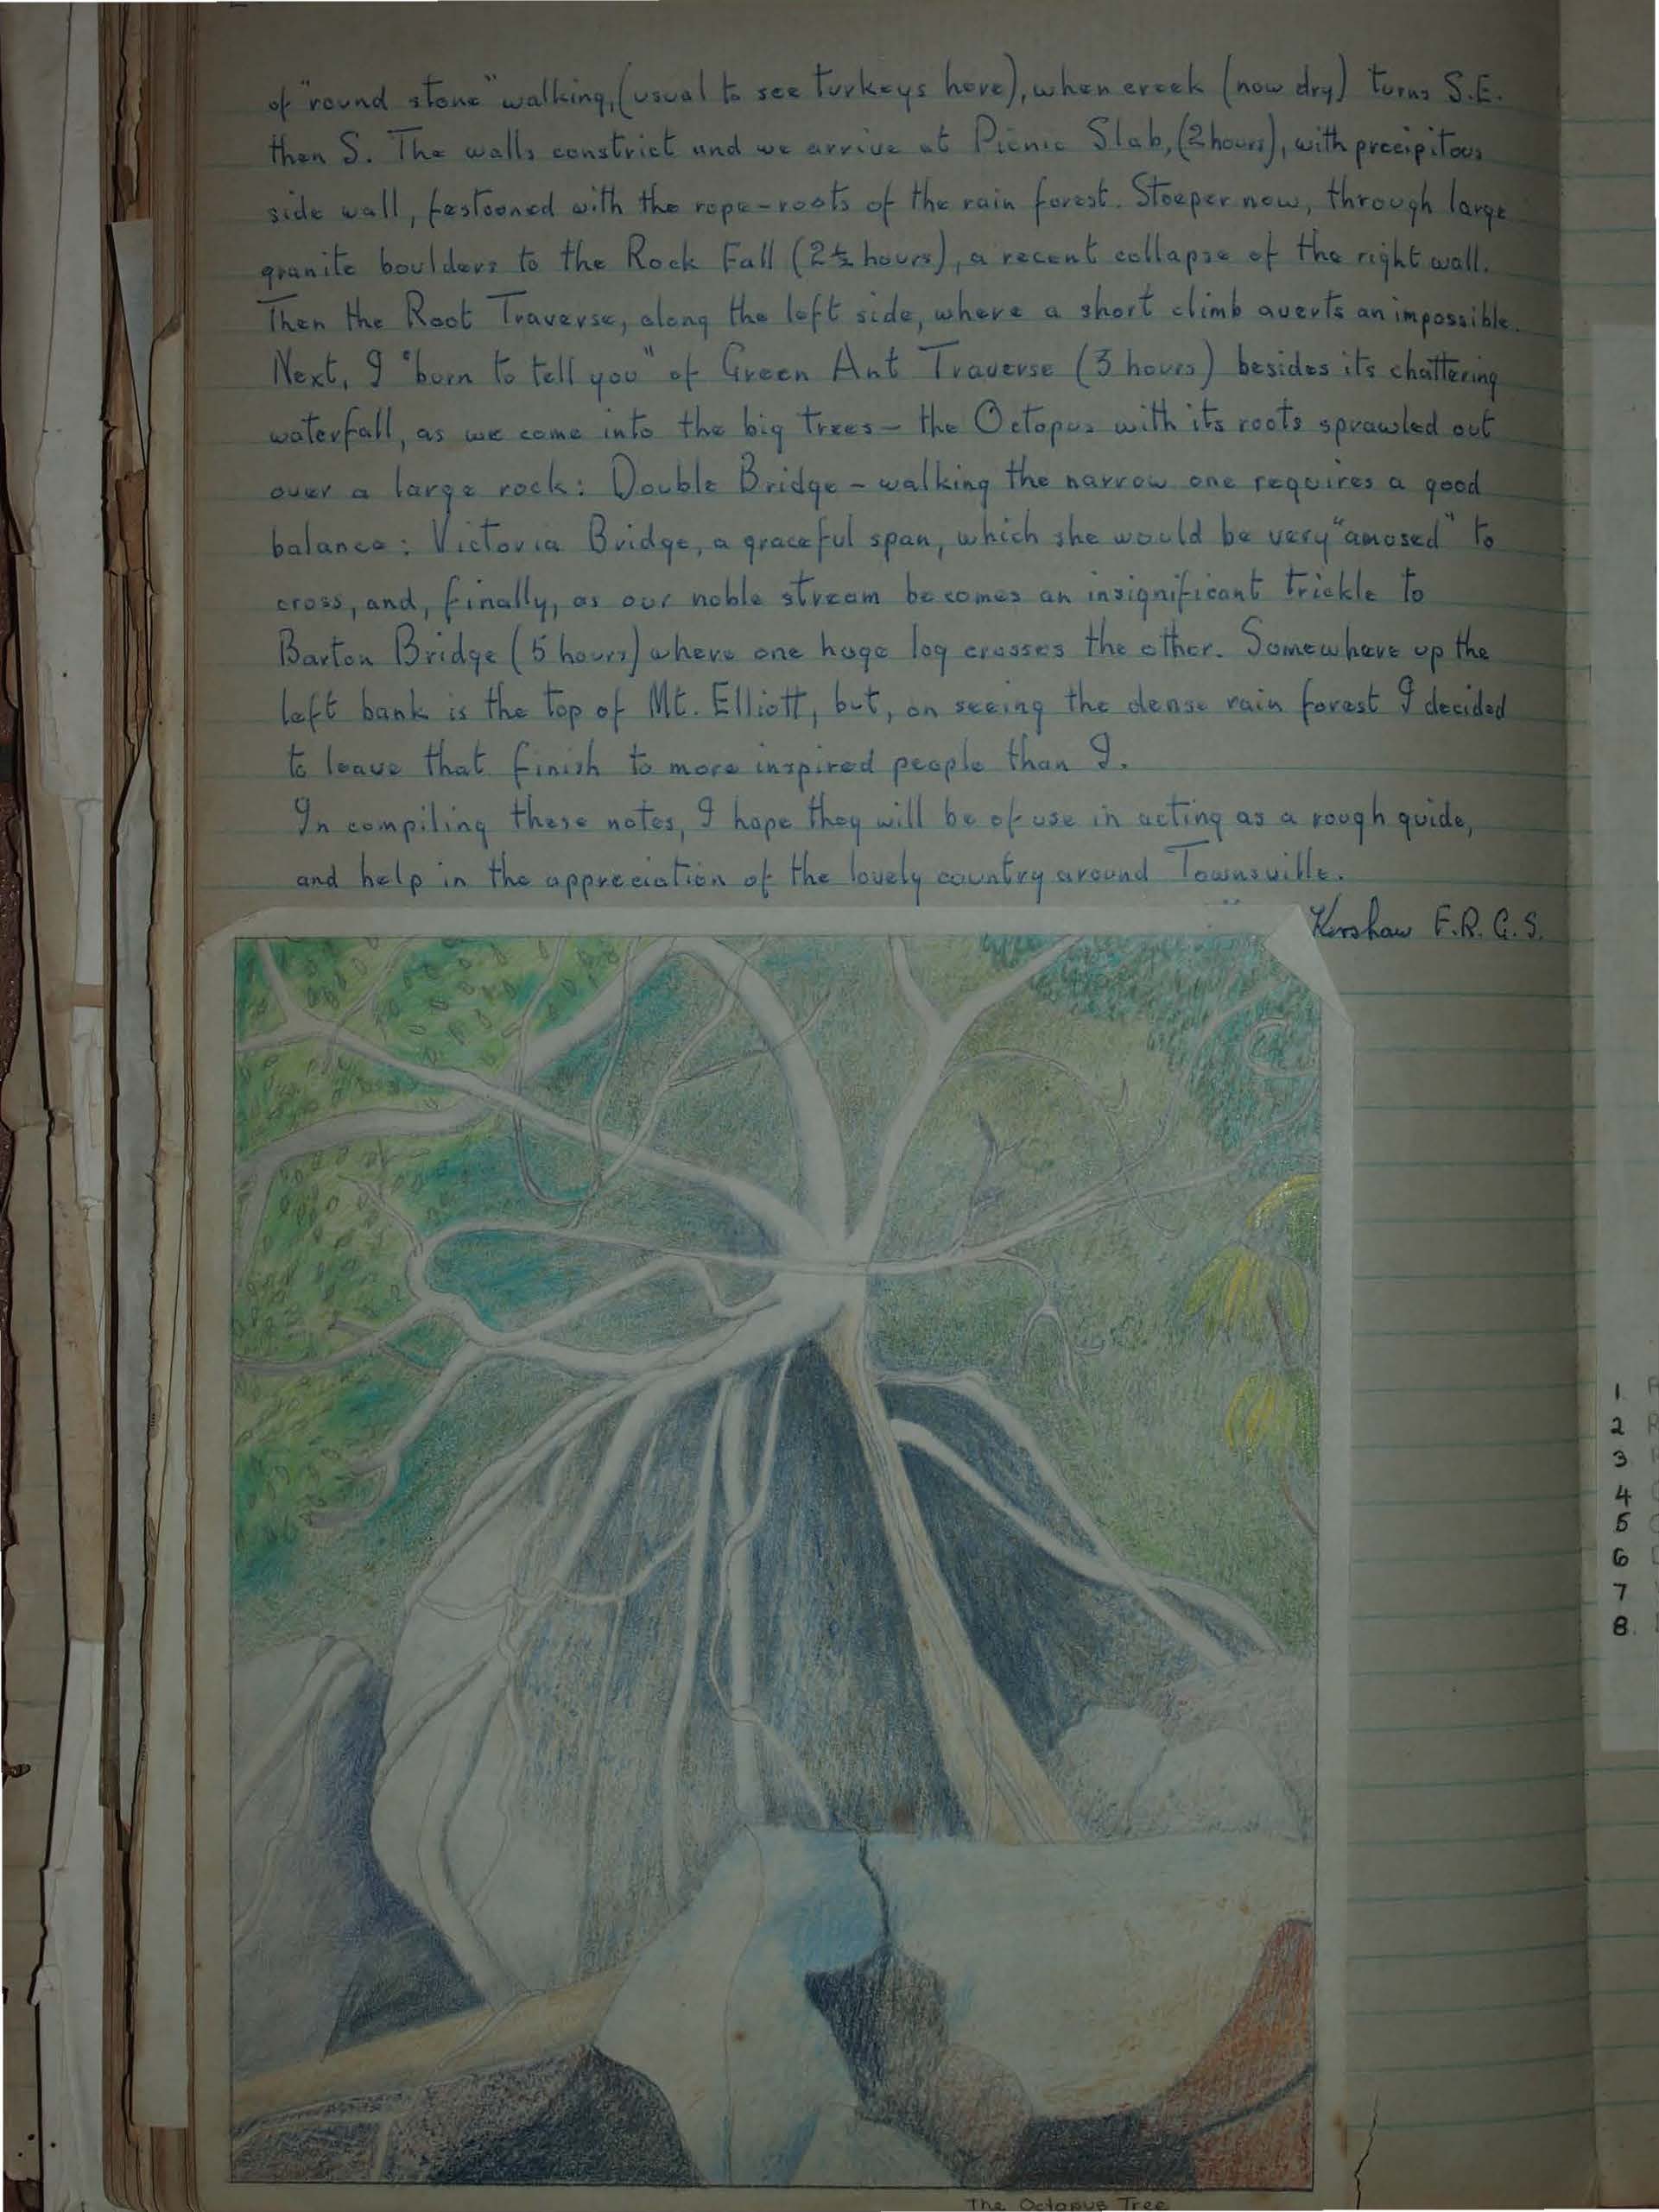 of "round stone" walking, (usual to see turkeys here), when creek (now dry) turns S.E.
then S. The walls constrict and we arrive at Picnic Slab, (2 hours), with precipitous
side wall, festooned with the rope-roots of the rain forest. Steeper now, through large
granite boulders to the Rock Fall (2½ hours), a recent collapse of the right wall.
Then the Root Traverse, along the left side, where a short climb averts an impossible.
Next, I "burn to tell you" of Green Ant Traverse (3 hours) besides its chattering
waterfall, as we come into the big trees – the Octopus with its roots sprawled out
over a large rock: Double Bridge – walking the narrow one requires a good
balance: Victoria Bridge, a graceful span, which she would be very "amused" to
cross, and, finally, as our noble stream becomes an insignificant trickle to
Barton Bridge (5 hours) where one huge log crosses the other. Somewhere up the
left bank is the top of Mt. Elliott, but, on seeing the dense rain forest I decided
to leave that finish to more inspired people than I.
In compiling these notes, I hope they will be of use in acting as a rough guide,
and help in the appreciation of the lovely country around Townsville.
Kershaw F.R.G.S.
The Octopus Tree
1
2
3
4
5
6
7
8.